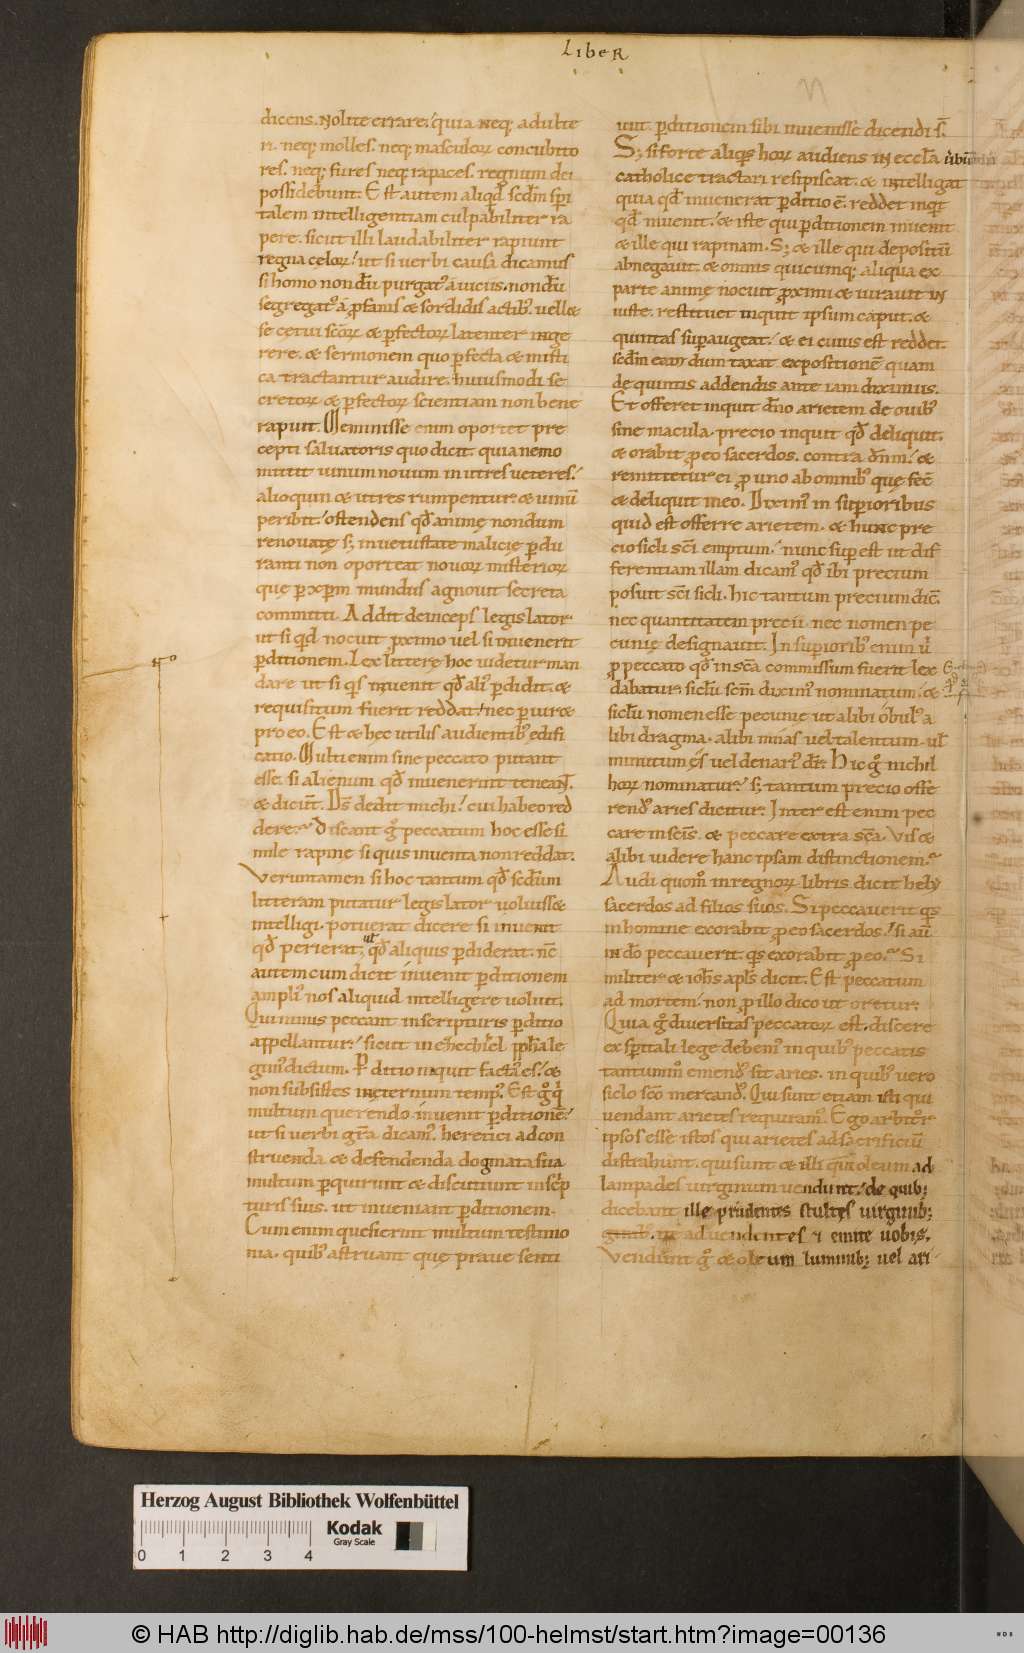 LibeR
dicens. Nolite errare. quia neq; adulte
ri. neq; molles. neq; masculoꝝ concubito
res. neq; fures neq; rapaces. regnum dei
possidebunt. Est autem aliqd scdm spi
talem intelligentiam culpabiliter ra
pere. sicut illi laudabiliter rapiunt
regna celoꝝ. ut si verbi causa dicamus
si homo nondū purgatꝰ a uiciis. nondū
segregatꝰ a ꝓfanis & sordidis actibꝰ. uell&
se cetui scoꝝ & ꝑfectoꝝ latenter inge
rere. & sermonem quo ꝑfecta & misti
ca tractantur audire. huiusmodi se
cretoꝝ & ꝑfectoꝝ scientiam non bene
rapuit. Meminisse enim oportet pre
cepti saluatoris quo dicit. quia nemo
mittit uinum nouum in utres ueteres.
alioquin & utres rumpentur & uinū
peribit. ostendens qđ animę nondum
renouatę s; in uetustate malicię ꝑdu
ranti non oporteat nouoꝝ misterioꝝ
quę ꝑ xpm mundus agnouit secreta
committi. Addit deinceps legislator
ut si qđ nocuit ꝓximo uel si inuenerit
ꝑditionem. Lex litterę hoc uidetur man
dare ut si qis inuenit qđ aliꝰ ꝑdidit. &
requisitum fuerit reddat. nec ꝑiur&
pro eo. Est & hęc utilis audientibꝰ edifi
catio. Multi enim sine peccato putant
esse. si alienum qđ inuenerint teneant.
& dicunt. Ds dedit michi. cui habeo red
dere. Discant g peccatum hoc esse si
mile rapinę si quis inuenta non reddat.
Veruntamen si hoc tantum qđ scdum
litteram putatur legislator uoluiss&
intelligi. potuerat dicere si inuenit
qđ perierat, ul qđ aliquis ꝑdiderat. nc
autem cum dicit inuenit ꝑditionem
ampliꝰ nos aliquid intelligere uoluit.
Qui nimis peccant in scripturis ꝑditio
appellantur. sicut in ezechiel
dictum. Perditio inquit factꝰ es. &
non subsistes in ęternum tempꝰ. Est g qi
multum querendo inuenit ꝑditionē.
ut si uerbi gra dicamꝰ. heretici ad con
struenda & defendenda dogmata sua
multum ꝑquirunt & discutiunt in scrip
turis suis. ut inueniant ꝑditionem.
Cum enim quesierint multum testimo
nia. quibꝰ astruant quę praue senti
unt. ꝑditionem sibi inuenisse dicendi s.
S; si forte aliqis hoꝝ audiens in eccla
catholice tractari resipiscat. & intelligat
quia qđ inuenerat ꝑditio ē. reddet inqit
qđ inuenit. & iste qui ꝑditionem inuenit
& ille qui rapinam. S; & ille qui depositū
abnegauit. & omnis quicumq; aliqua ex
parte animę nocuit ꝓximi & iurauit in
iuste. restituet inquit ipsum caput. &
quintas suꝑaugeat. & ei cuius est reddet.
scdm eam dum taxat expositionē quam
de quintis addendis ante iam diximus.
Et offeret inquit dno arietem de ouibꝰ
sine macula. precio inquit qđ deliquit.
& orabit ꝓ eo sacerdos. contra dnm. &
remittetur ei ꝓ uno ab omnibꝰ quę fec
& deliquit in eo. Diximꝰ in suꝑioribus
quid est offerre arietem. & hunc pre
cio sicli sci emptum. nunc suꝑ est ut dif
ferentiam illam dicamꝰ qđ ibi precium
posuit sci sicli. hic tantum precium dic.
nec quantitatem precii. nec nomen pe
cunię designauit. In suꝑioribꝰ enim u
ꝓ peccato qđ in sca commissum fuerit lex
dabatur. siclū scm diximꝰ nominatum. &
siclū nomen esse pecunię ut alibi obulꝰ a
libi dragma. alibi mnas uel talentum. ul
minutum ęs uel denariꝰ dr. Hic g nichil
hoꝝ nominatur. s; tantum precio offe
rendꝰ aries dicitur. Inter est enim pec
care in scis. & peccare extra sca. Vis &
alibi uidere hanc ipsam distinctionem.
Audi quomō in regnoꝝ libris dicit hely
sacerdos ad filios suos. Si peccauerit qis
in homine exorabit ꝓ eo sacerdos. si aū
in do peccauerit. qis exorabit ꝓ eo. Si
militer & iohs apls dicit. Est peccatum
ad mortem. non ꝓ illo dico ut oretur.
Quia g diuersitas peccatoꝝ est. discere
ex spitali lege debemꝰ in quibꝰ peccatis
tantummō emendꝰ sit aries. in quibꝰ uero
siclo sco mercandꝰ. Qui sunt etiam isti qui
uendant arietes requiramꝰ. Ego arbitror
ipsos esse istos qui arietes ad sacrificiū
distrahunt. qui sunt & illi qui oleum ad
lampades uirginum uendunt. de quib;
dicebant ille prudentes stultes uirginib;
ad uendentes & emite uobis.
Vendunt g & oleum luminib; uel ari
Herzog August Bibliothek Wolfenbüttel
Kodak
Gray Scale
0 1 2 3 4
© HAB http://diglib.hab.de/mss/100-helmst/start.htm?image=00136